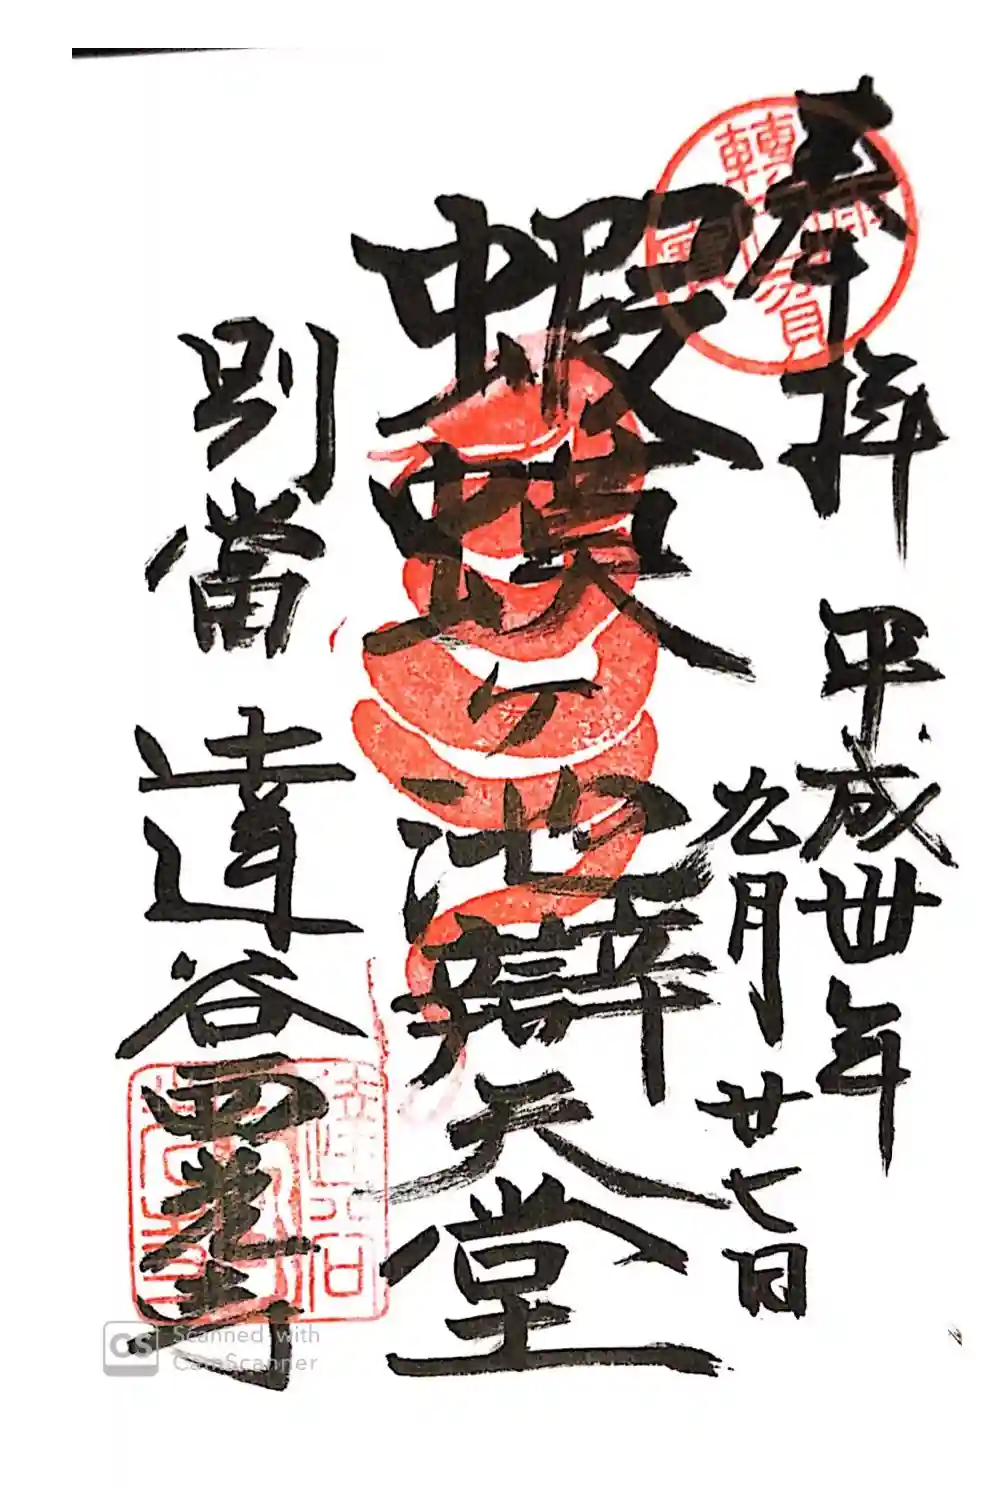 奉拝
平成丗年
九月廿七日
蝦蟆ヶ池辯天堂
別當
達谷西光寺
Scanned with
CamScanner